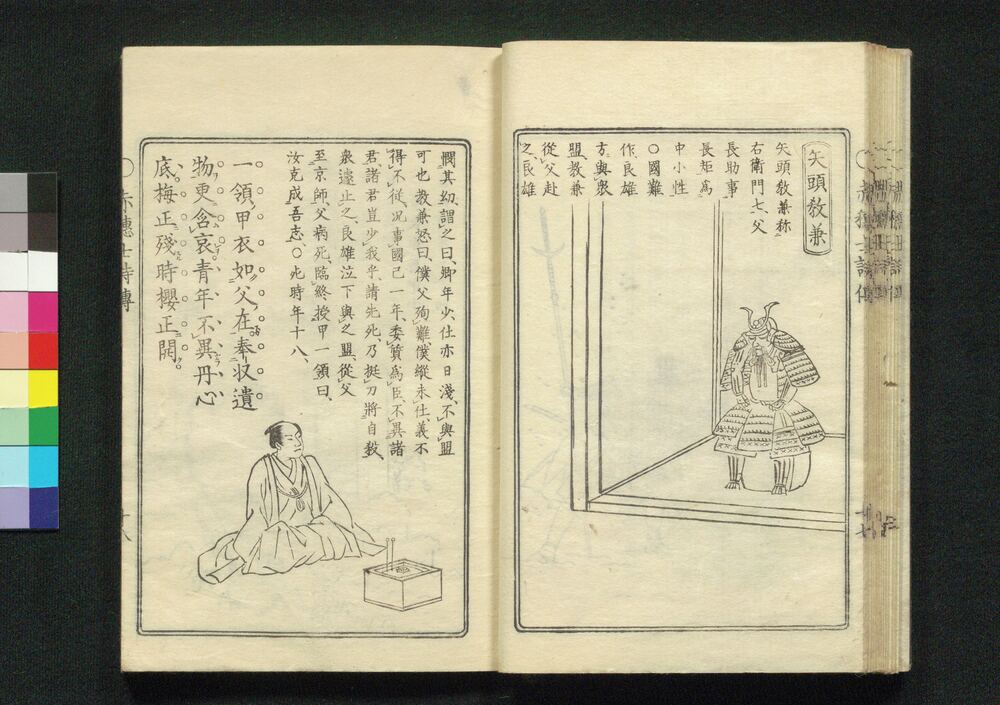 矢頭教兼
矢頭教兼称
右衛門七父
長助事
長矩為
中小性
〇國難
作良雄
有與衆
盟教兼
從父赴
之良雄
憫其幼謂之曰卿年少仕亦日淺不與盟
可也教兼怒曰僕父殉難僕縱未仕義不
得不從况事國已一年委質為臣不異諸
君諸君豈少我乎請先死乃挺刀將自殺
衆遽止之良雄泣下與之盟從父
至京師父病死臨終授甲一領曰
汝克成吾志〇死時年十八
一領甲衣如父在奉収遺
物更含哀青年不異丹心
底梅正殘時櫻正開
〇赤穗士詩傳